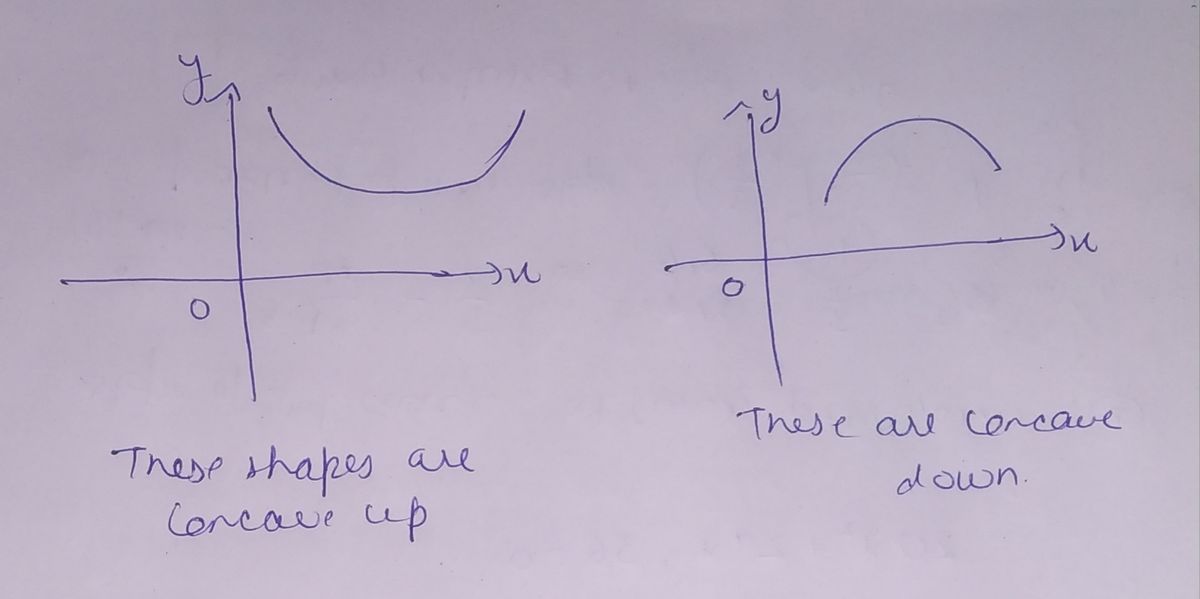 y
x
0
These shapes are
concave up
y
x
0
These are concave
down.